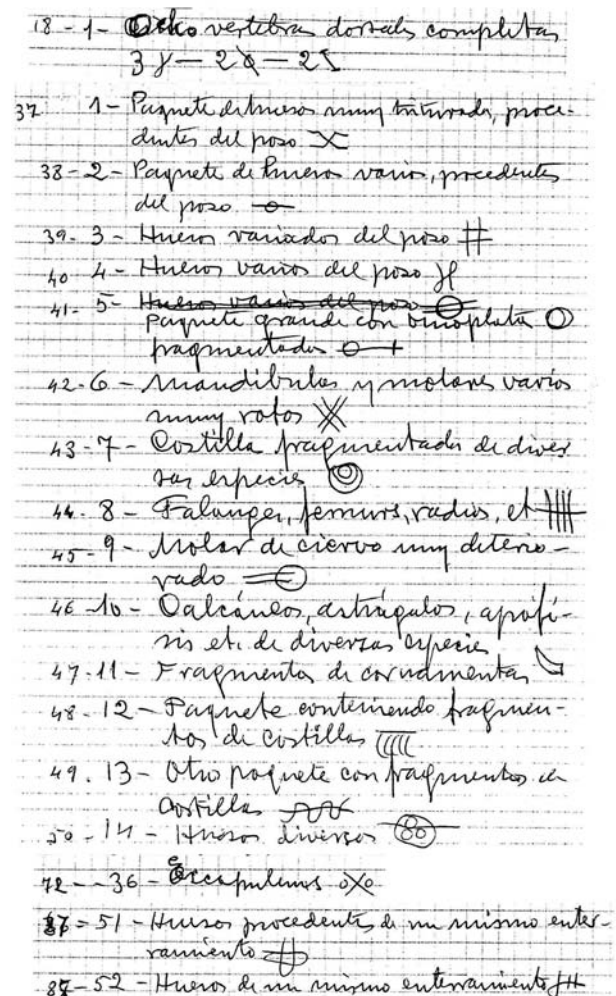 18 - 1 - Ocho vertebras dorsales completas
3 - 2 - 2
37 1 - Paquete de huesos muy triturados, proce-
dentes del poso
38 - 2 - Paquete de huesos varios, procedentes
del poso
39 - 3 - Huesos variados del poso
40 4 - Huesos varios del poso
41 - 5 - Huesos varios del poso
paquete grande con omoplatos
fragmentados
42 - 6 - Mandibulas y molares varios
muy rotos
43 - 7 - Costilla fragmentada de diver
sas especies
44 - 8 - Falanges, femurs, radios, et
45 - 9 - Molar de ciervo muy deterio-
rado
46 - 10 - Calcáneos, astrágalos, apofi-
sis etc. de diversas especies
47 - 11 - Fragmentos de cornamentas
48 - 12 - Paquete conteniendo fragmen-
tos de costillas
49 . 13 - Otro paquete con fragmentos de
costillas
50 - 14 - Huesos diversos
72 - - 36 -
51 - Huesos procedentes de un mismo enter-
ramiento
52 - Huesos de un mismo enterramiento